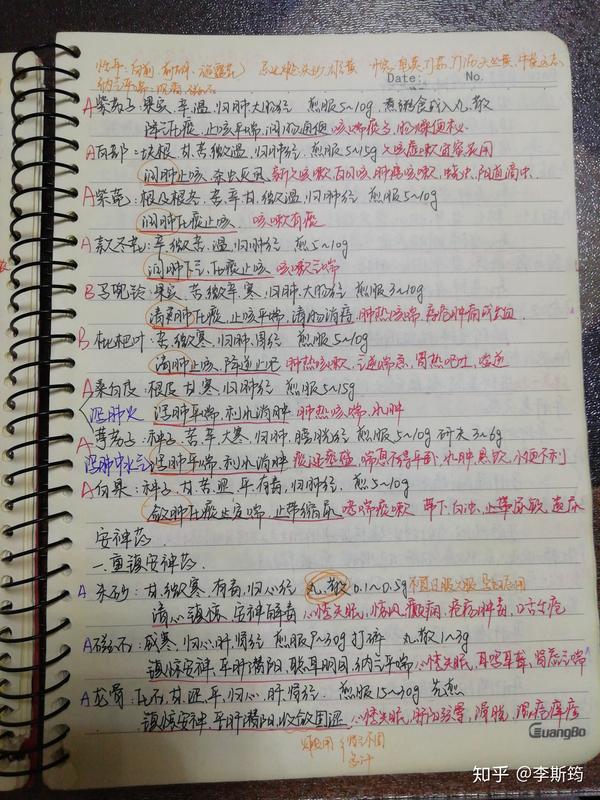 Date: No.
A 紫苏子:果实,辛温,归肺大肠经 煎服5~10g,煮粥食或入丸、散
降气化痰,止咳平喘,润肠通便 咳喘痰多,肠燥便秘
A 百部:块根,甘苦微温,归肺经 煎服5~15g 久咳虚嗽宜蜜炙用
润肺止咳,杀虫灭虱 新久咳嗽,百日咳,肺痨咳嗽,蛲虫,阴道滴虫
A 紫菀:根及根茎,苦辛甘微温,归肺经 煎服5~10g
润肺化痰止咳 咳嗽有痰
A 款冬花:辛微苦,温,归肺经 煎5~10g
润肺下气,化痰止咳 咳嗽气喘
B 马兜铃:果实 苦微辛,寒,归肺、大肠经 煎服3~10g
清肺化痰,止咳平喘,清肠消痔 肺热咳喘,痔疮肿痛或出血
B 枇杷叶:苦,微寒,归肺、胃经 煎5~10g
清肺止咳,降逆止呕 肺热咳嗽,气逆喘急,胃热呕吐,哕逆
A 桑白皮:根皮,甘寒,归肺经 煎服5~15g
泻肺火 泻肺平喘,利水消肿 肺热咳喘,水肿
A 葶苈子:种子,苦辛,大寒,归肺、膀胱经 煎服5~10g 研末3~6g
泻肺中水气 泻肺平喘,利水消肿 痰涎壅盛,喘息不得平卧 水肿,悬饮,小便不利
A 白果:种子,甘、苦、涩,平,有毒,归肺经 煎5~10g
敛肺化痰定喘,止带缩尿 哮喘痰嗽 带下,白浊,尿频,遗尿
安神药
一、重镇安神药
A 朱砂:甘,微寒,有毒,归心经 丸、散 0.1~0.5g
清心镇惊,安神解毒 心悸失眠,惊风,癫痫,疮疡肿毒,口舌生疮
A 磁石:咸寒,归心肝、肾经 煎服9~30g 打碎 丸散1~3g
镇惊安神,平肝潜阳,聪耳明目,纳气平喘 心悸失眠,耳鸣耳聋,肾虚气喘
A 龙骨:化石,甘、涩,平,归心、肝、肾经 煎服15~30g 先煎
镇惊安神,平肝潜阳,收敛固涩 心悸失眠,肝阳眩晕,滑脱,湿疮痒疹
GuangBo
知乎 @李斯筠